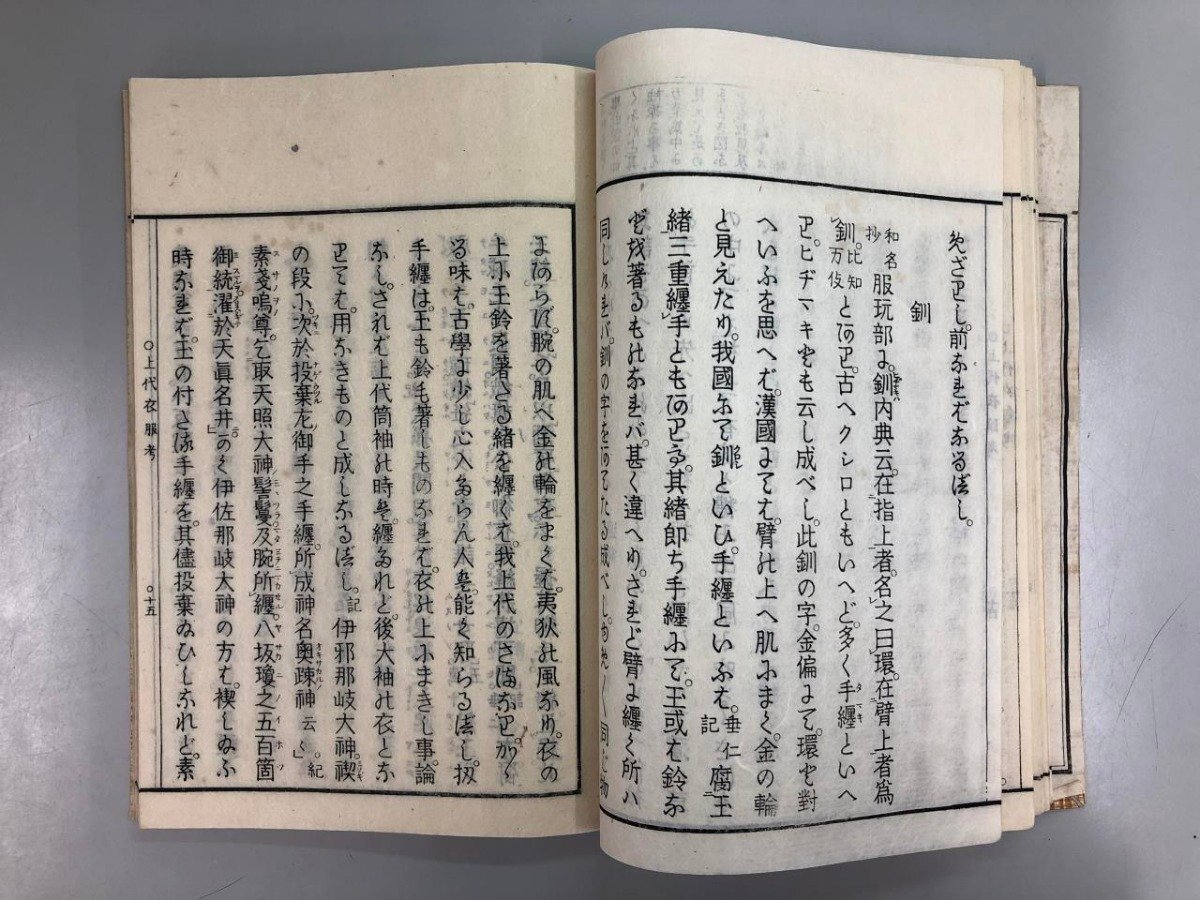 ぬざりし。前なればなるべし。
釧
和名抄 服玩部に。釧内典云。在指上者。名之曰環。在臂上者爲
釧。比知万伎 とあり。古へクシロともいへど。多く手纏といへ
り。ヒヂマキとも云し成べし。此釧の字。金偏にて。環と對
へいふを思へば。漢國にても。臂の上へ肌にまく。金の輪
と見えたり。我國にて釧といひ。手纏といふは。垂仁記 腐玉
緒三重纏手ともありて。其緒即ち手纏にて。玉或は鈴な
ど著るものなれバ。甚く違へり。されど臂に纏く所ハ
同しけれバ。釧の字を あてたる成べし。
まあらず。腕の肌へ金の輪をまくは。夷狄の風なり。衣の
上に玉鈴を著たる緒を纏くは。我上代のさまなり。かゝ
る味は。古學に少し心入あらん人は。能く知らるべし。扨
手纏は。玉も鈴も著しものなれば。衣の上にまきし事論
なし。されば上代筒袖の時は。纏たれど。後大袖の衣とな
りては。用なきものと成しなるべし。記 伊邪那岐大神。禊
の段に。次於投棄左御手之手纏。所成神名奥疎神云〻。紀
素戔嗚尊。乞取天照大神髻鬘及腕所纏。八坂瓊之五百箇
御統。濯於天眞名井。かく伊佐那岐大神の方は。禊したふ
時なれば。玉の付たる手纏を。其儘投棄たひしなれど。素
〇上代衣服考
〇十五